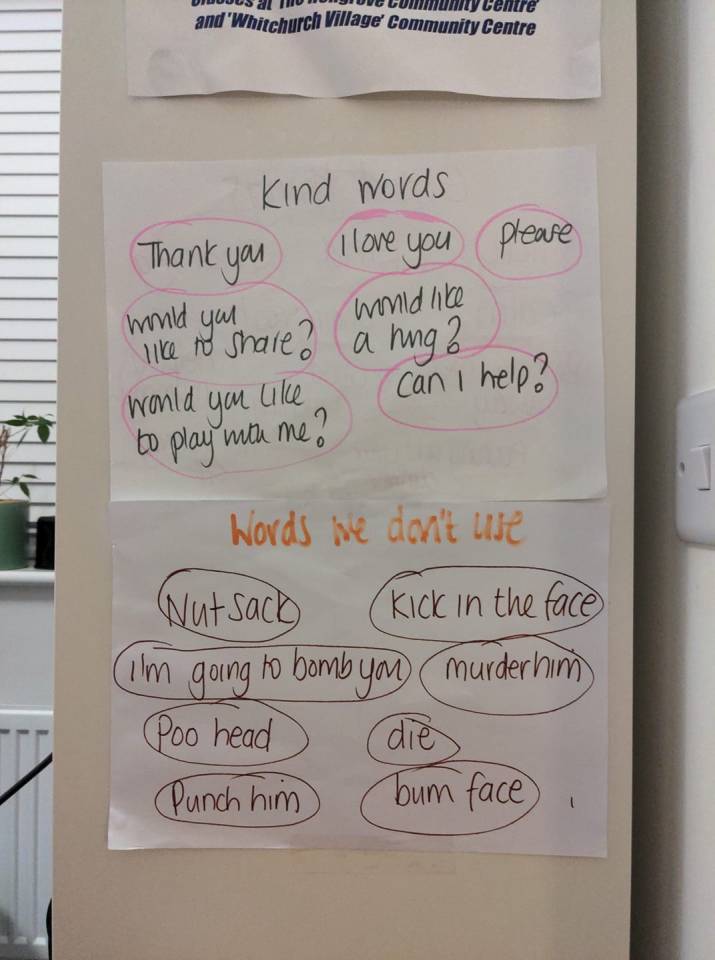 Classes at 'The Hengrove Community Centre'
and 'Whitchurch Village' Community Centre
Kind words
Thank you
I love you
please
would you
like to share?
would like
a hug?
can I help?
would you like
to play with me?
Words we don't use
Nut sack
Kick in the face
I'm going to bomb you
murder him
Poo head
die
Punch him
bum face